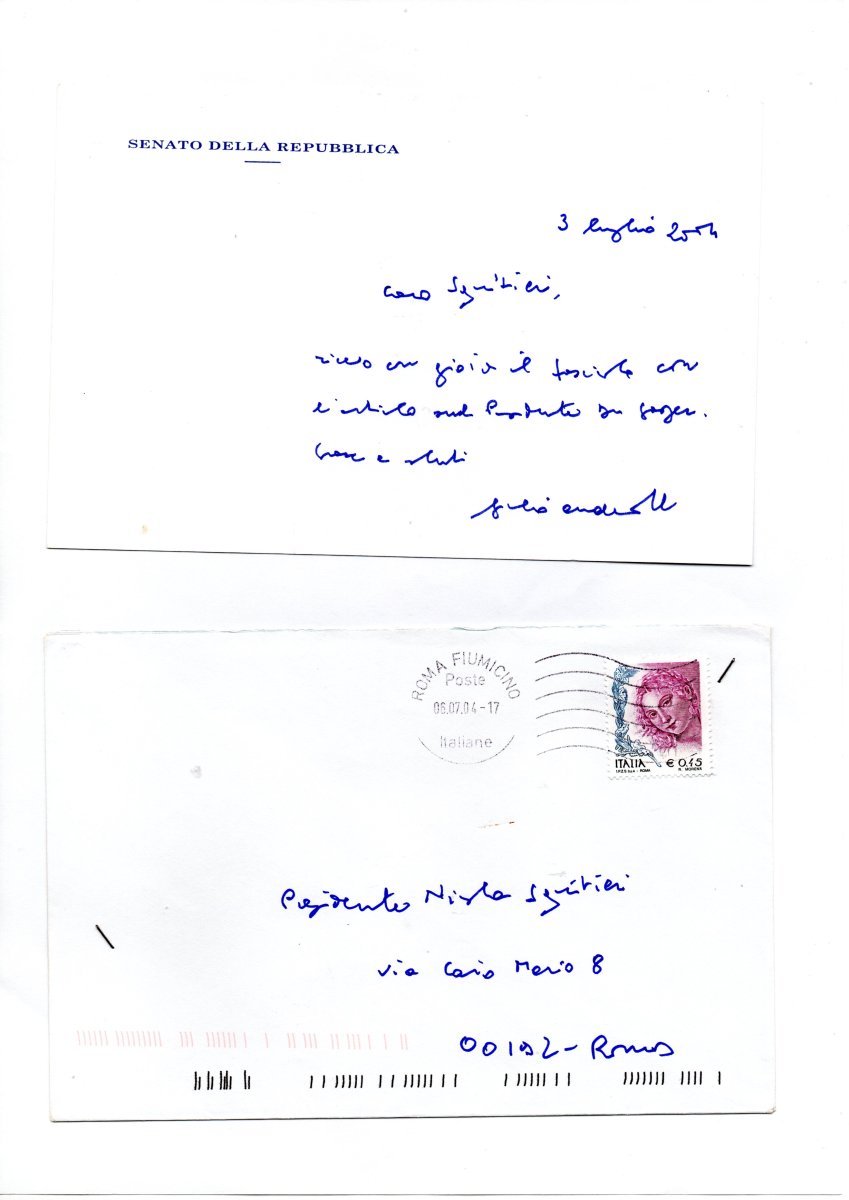 SENATO DELLA REPUBBLICA
3 luglio 2004
Caro Squitieri,
ricevo con gioia il fascicolo con
l'articolo sul Presidente De
Grazie e saluti
Giulio Andreotti
ROMA FIUMICINO
Poste
06.07.04-17
Italiane
ITALIA € 0,45
I.P.Z.S. S.p.A. - ROMA R. MORENA
Presidente Nicola Squitieri
via Caio Mario 8
00192-Roma